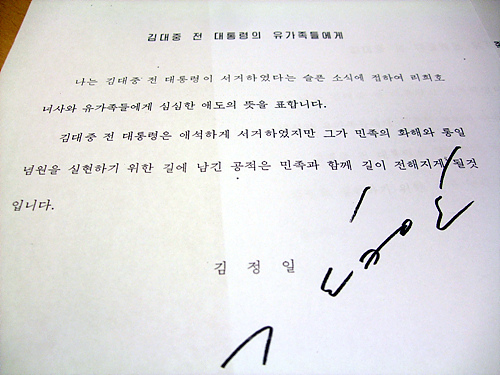 김대중 전 대통령의 유가족들에게
나는 김대중 전 대통령이 서거하였다는 슬픈 소식에 접하여 리희호
녀사와 유가족들에게 심심한 애도의 뜻을 표합니다.
김대중 전 대통령은 애석하게 서거하였지만 그가 민족의 화해와 통일
념원을 실현하기 위한 길에 남긴 공적은 민족과 함께 길이 전해지게 될것
입니다.
김 정 일